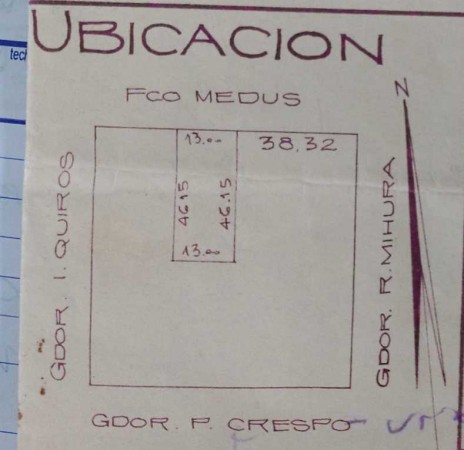 UBICACION
tec
Fco MEDUS
N
13.00
38,32
GDOR. I. QUIROS
46.15
46.15
GDOR. R. MIHURA
13.00
GDOR. P. CRESPO